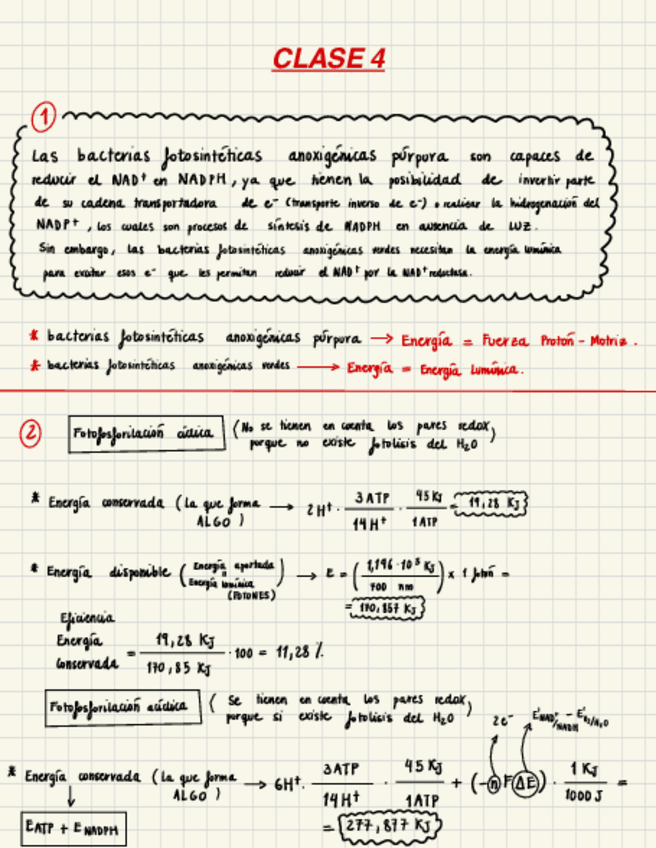 CLASE 4
1
Las bacterias fotosintéticas anoxigénicas púrpura son capaces de
reducir el NAD⁺ en NADPH, ya que tienen la posibilidad de invertir parte
de su cadena transportadora de e⁻ (transporte inverso de e⁻) o realizar la hidrogenación del
NADP⁺, los cuales son procesos de síntesis de NADPH en ausencia de LUZ.
Sin embargo, las bacterias fotosintéticas anoxigénicas verdes necesitan la energía lumínica
para excitar esos e⁻ que les permitan reducir el NAD⁺ por la NAD⁺ reductasa.
* bacterias fotosintéticas anoxigénicas púrpura → Energía = Fuerza Protón - Motriz.
* bacterias fotosintéticas anoxigénicas verdes → Energía = Energía Lumínica.
2
Fotofosforilación cíclica (No se tienen en cuenta los pares redox,
porque no existe fotolisis del H₂O)
* Energía conservada (La que forma ALGO) → 2H⁺ · 3ATP/14H⁺ · 45 KJ/1ATP = 19,28 KJ
* Energía disponible (Energía aportada = Energía lumínica (FOTONES)) → E = (1,196 · 10⁵ KJ / 700 nm) x 1 fotón =
= 170,857 KJ
Eficiencia
Energía conservada = 19,28 KJ / 170,85 KJ · 100 = 11,28 %
Fotofosforilación acíclica (Se tienen en cuenta los pares redox,
porque si existe fotolisis del H₂O)
2e⁻
* Energía conservada (La que forma ALGO) → 6H⁺ · 3ATP/14H⁺ · 45 KJ/1ATP + (-nFΔE) · 1 KJ/1000 J =
E ATP + E NADPH
= 277,877 KJ